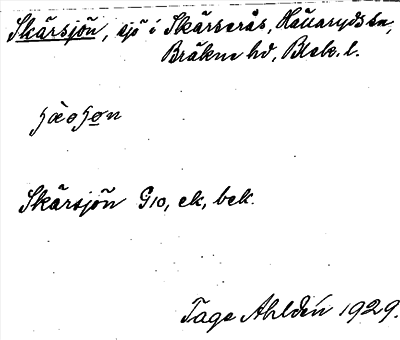 Skärsjön, sjö i Skärserås, Hallaryds sn,
Bräkne hd, Blek. l.
Skärsjön G10, ek, bek.
Tage Ahldén 1929.